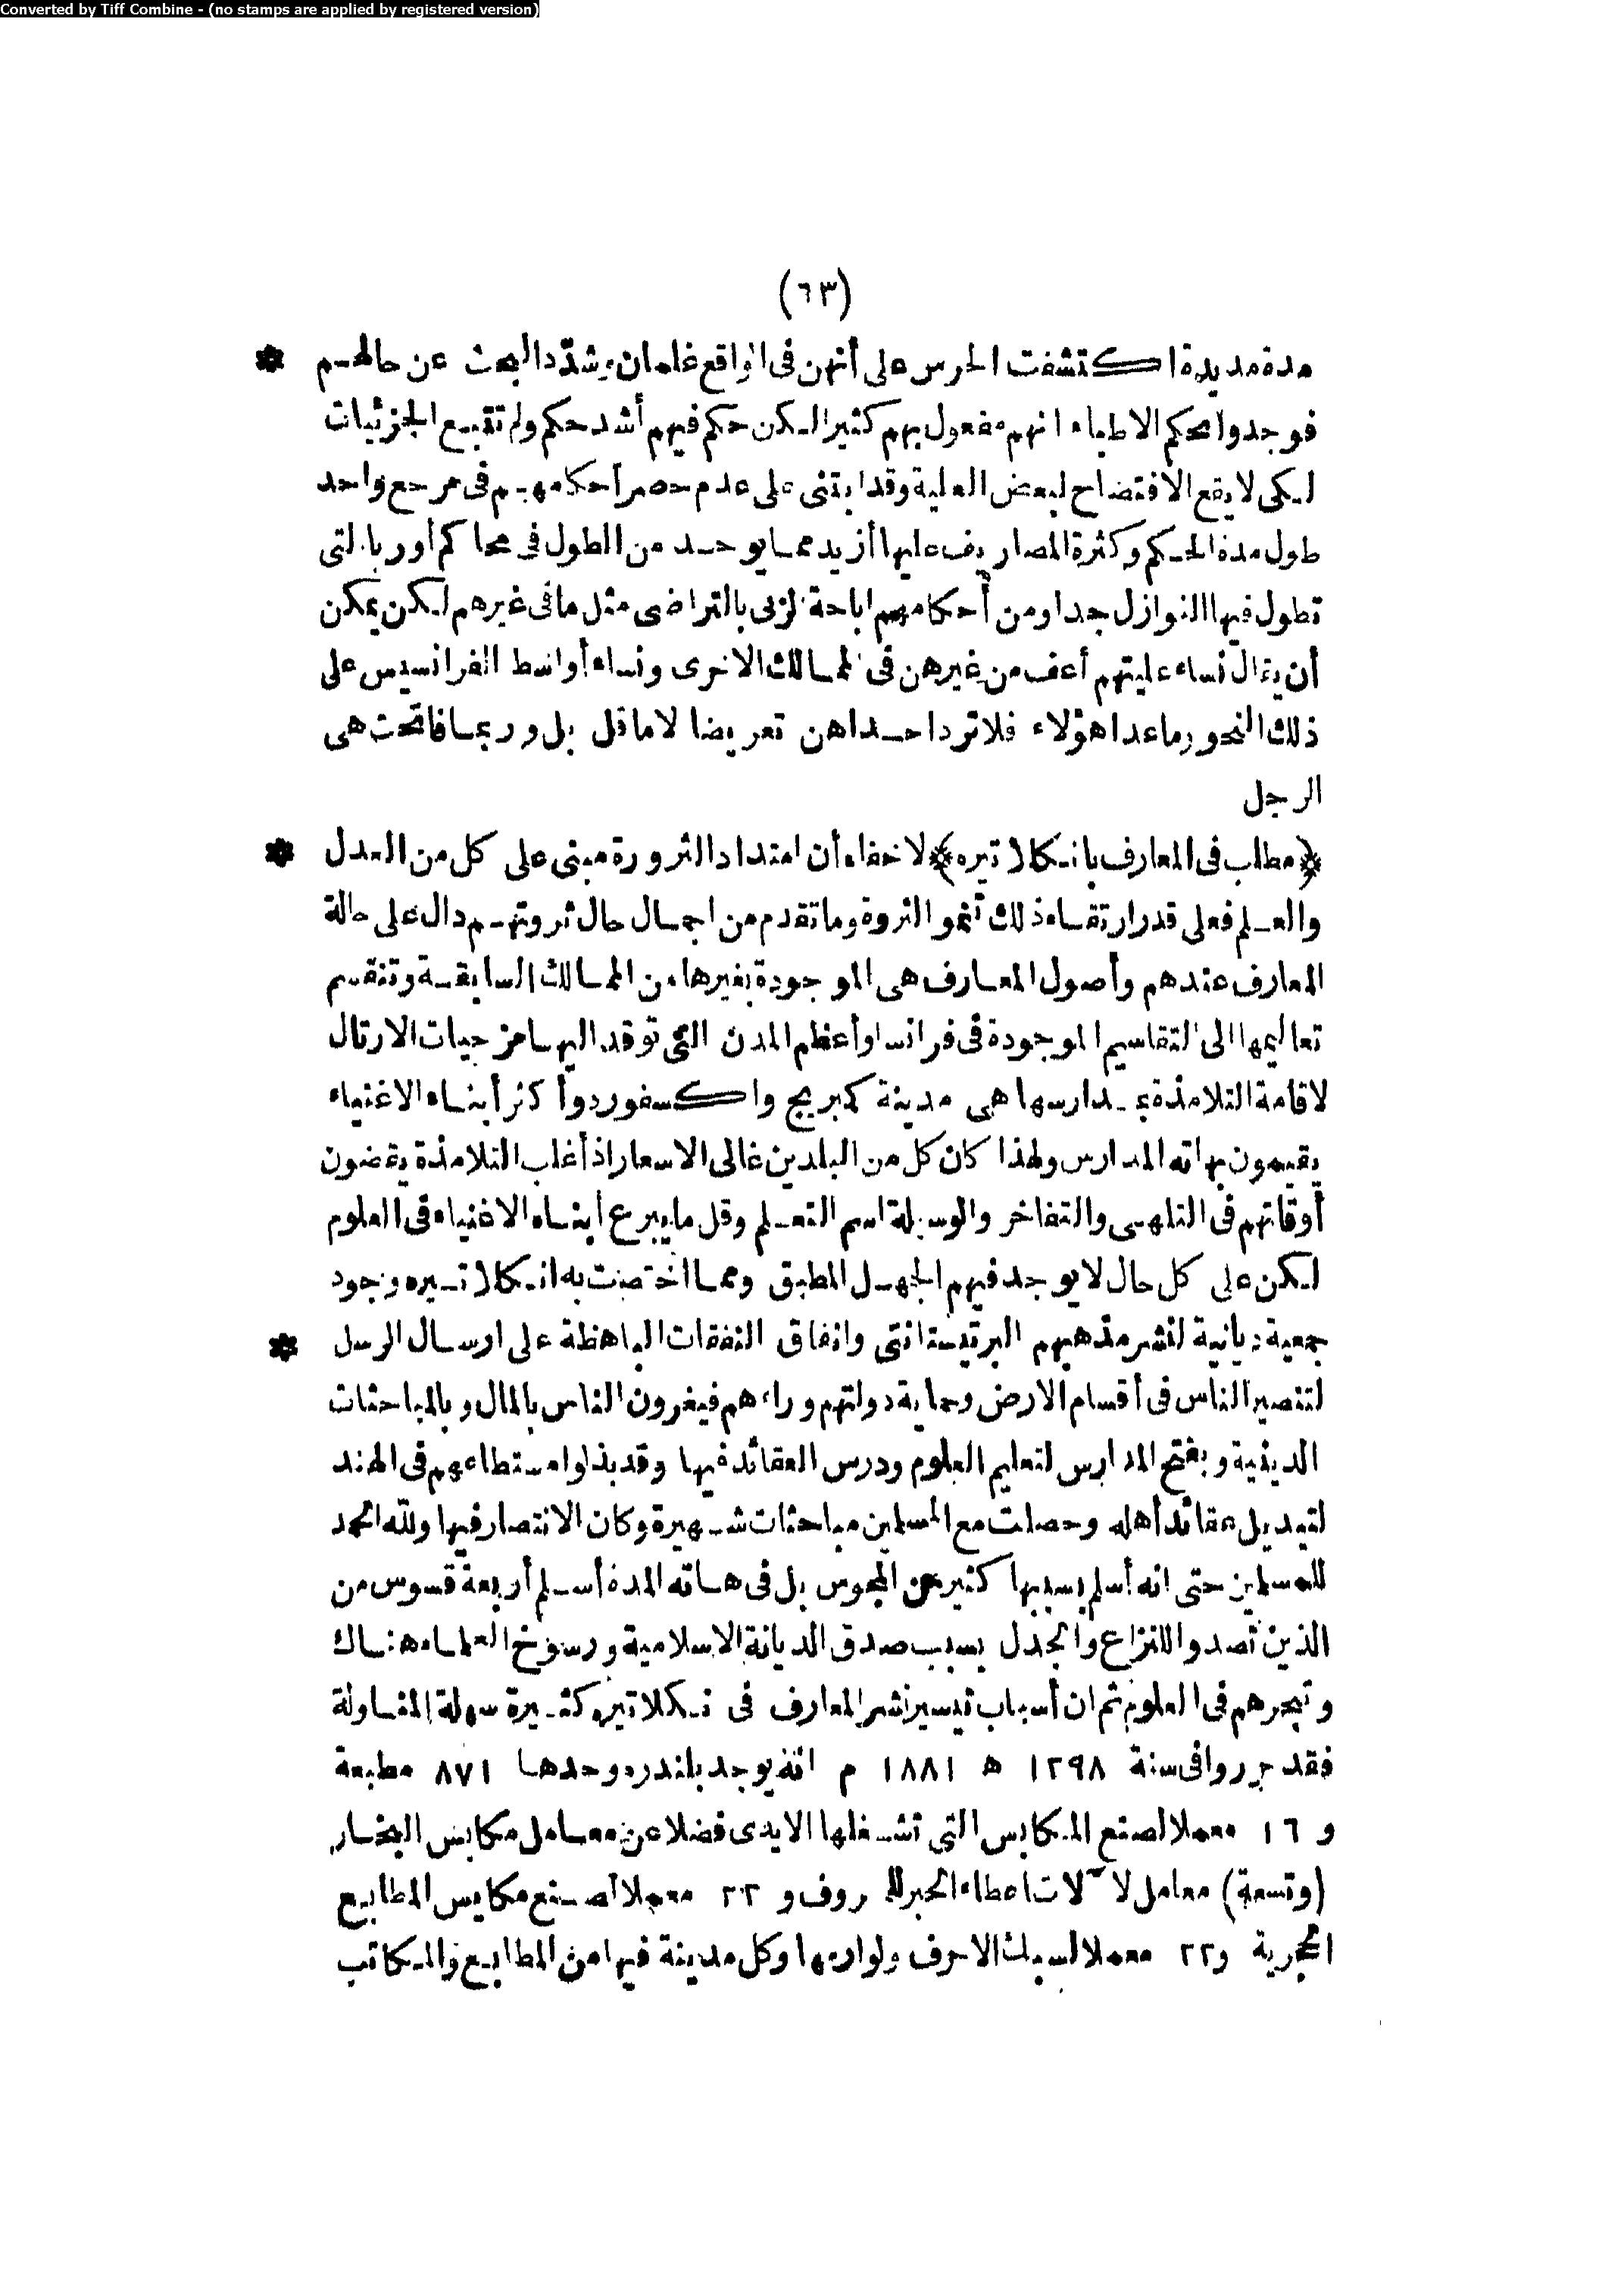 Converted by Tiff Combine - (no stamps are applied by registered version)
(٦٣)
مدة مديدة اكتشفت الحرس على أنهن في الواقع غلمان وشدّد البحث عن حالهم *
فوجدوا بحكم الاطباء انهم مفعول بهم كثيرا لكن حكم فيهم أشد حكم ولم تتبع الجزئيات
لكى لا يقع الافتضاح لبعض العلية وقد ابتنى على عدم حصر أحكامهم فى مرجع واحد
طول مدة الحكم وكثرة المصاريف عليها أزيد مما يوجد من الطول فى محاكم أوربا التى
تطول فيها النوازل جدا ومن أحكامهم اباحة الزنى بالتراضى مثل ما فى غيرهم لكن يمكن
أن يقال نساء عليتهم أعف من غيرهن فى الممالك الاخرى ونساء أواسط الفرانسيس على
ذلك النحو وما عدا هؤلاء فلا ترد احداهن تعريضا لا ما قل بل وربما فاتحت هى
الرجل
﴿مطلب فى المعارف بانكلاتيره﴾ لا خفاء أن امتداد الثرورة مبنى على كل من العدل *
والعلم فعلى قدر ارتقاء ذلك تنمو الثروة وما تقدم من اجمال حال ثروتهم دال على حالة
المعارف عندهم وأصول المعارف هى الموجودة بغيرها من الممالك السابقة وتنقسم
تعاليمها الى التقاسيم الموجودة فى فرانسا وأعظم المدن التى توقد اليها مزجيات الارتال
لاقامة التلامذة بمدارسها هى مدينة كمبريج واكسفورد وأكثر أبناء الاغنياء
يقيمون بهاته المدارس ولهذا كان كل من البلدين غالى الاسعار اذ أغلب التلامذة يقضون
أوقاتهم فى التلهى والتفاخر والوسيلة اسم التعلم وقل ما يبرع أبناء الاغنياء فى العلوم
لكن على كل حال لا يوجد فيهم الجهل المطبق ومما اختصت به انكلاتيره وجود
جمعية ديانية لنشر مذهبهم البرتيستانتى وانفاق النفقات الباهظة على ارسال الرسل *
لتنصير الناس فى أقسام الارض وحماية دولتهم وراءهم فيغرون الناس بالمال وبالمباحثات
الدينية وبفتح المدارس لتعليم العلوم ودرس العقائد فيها وقد بذلوا مستطاعهم فى الهند
لتبديل عقائد أهله وحصلت مع المسلمين مباحثات شهيرة وكان الانتصار فيها ولله الحمد
للمسلمين حتى انه أسلم بسببها كثير من المجوس بل فى هاته المدة أسلم أربعة قسوس من
الذين تصدوا للنزاع والجدل بسبب صدق الديانة الاسلامية ورسوخ العلماء هناك
وتبحرهم فى العلوم ثم ان أسباب تيسير نشر المعارف فى نكلاتيره كثيرة سهلة المناولة
فقد حرروا فى سنة ١٢٩٨ ه ١٨٨١ م انه يوجد بلندره وحدها ٨٧١ مطبعة
و ١٦ معملا لصنع المكابس التى تشغلها الايدى فضلا عن معامل مكابس البخار
(وتسعة) معامل لآلات اعطاء الحبر للحروف و ٢٣ معملا لصنع مكابس المطابع
الحجرية و٢٢ معملا لسبك الاحرف ولوازمها وكل مدينة فيها من المطابع والمكاتب